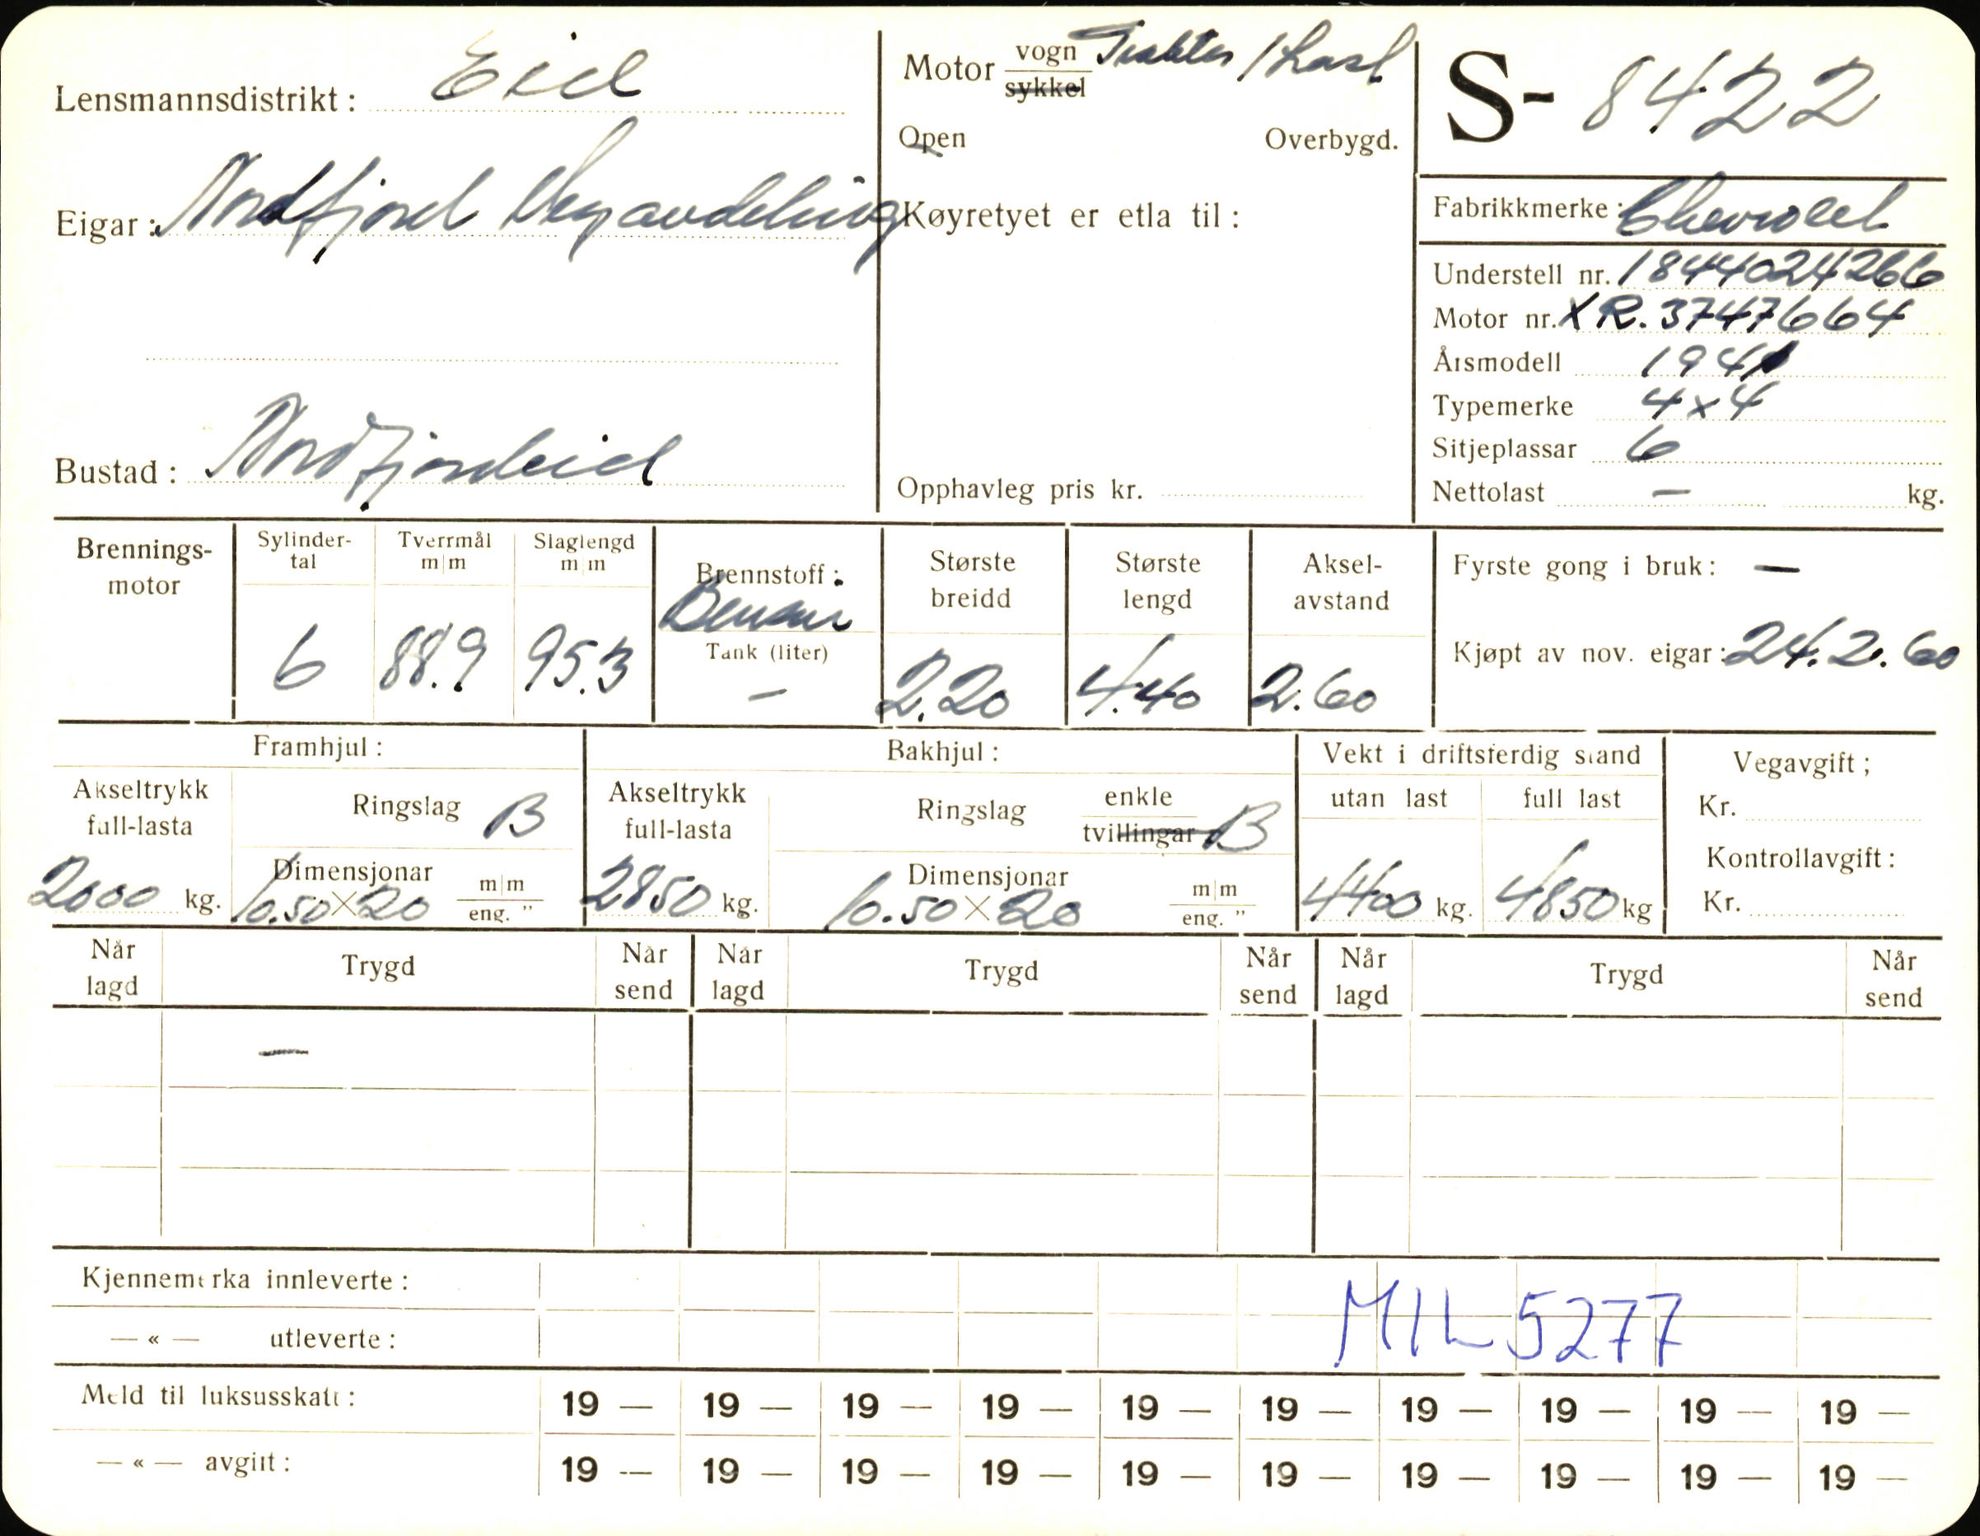 Lensmannsdistrikt: Eid
Eigar: Nordfjord Vegavdeling
Bustad: Nordfjordeid
Motor vogn Traktor / Last
sykkel
Open Overbygd.
Køyretyet er etla til:
Opphavleg pris kr.
S- 8422
Fabrikkmerke: Chevrolet
Understell nr. 1844024266
Motor nr. XR. 3747664
Årsmodell 1941
Typemerke 4x4
Sitjeplassar 6
Nettolast — kg.
Brennings-
motor
Sylinder-
tal
6
Tverrmål
m|m
88.9
Slaglengd
m|m
95.3
Brennstoff:
Bensin
Tank (liter)
—
Største
breidd
2.20
Største
lengd
4.40
Aksel-
avstand
2.60
Fyrste gong i bruk: —
Kjøpt av nov. eigar: 24.2.60
Framhjul:
Akseltrykk
full-lasta
2000 kg.
Ringslag B
Dimensjonar
10.50 × 20 m|m
eng. "
Bakhjul:
Akseltrykk
full-lasta
2850 kg.
Ringslag enkle
tvillingar B
Dimensjonar
10.50 × 20 m|m
eng. "
Vekt i driftsferdig stand
utan last full last
4400 kg. 4850 kg
Vegavgift;
Kr.
Kontrollavgift:
Kr.
Når
lagd
Trygd
Når
send
Når
lagd
Trygd
Når
send
Når
lagd
Trygd
Når
send
—
Kjennemerka innleverte:
— « — utleverte:
MIL 5277
Meld til luksusskatt: 19 — 19 — 19 — 19 — 19 — 19 — 19 — 19 — 19 — 19 —
— « — avgift: 19 — 19 — 19 — 19 — 19 — 19 — 19 — 19 — 19 — 19 —